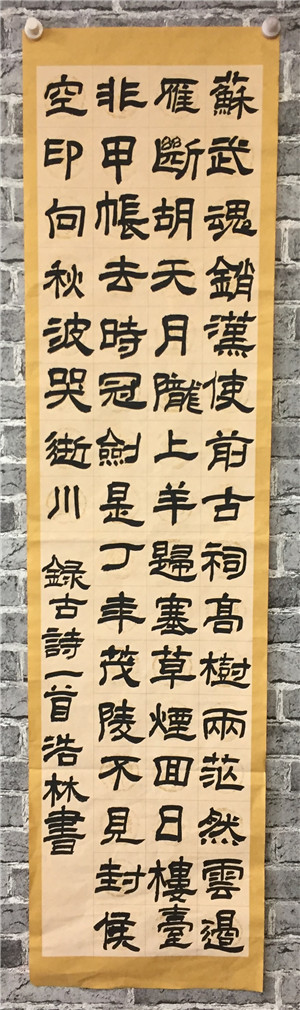 蘇武魂銷漢使前古祠高樹兩茫然雲邊
雁斷胡天月隴上羊歸塞草煙回日樓臺
非甲帳去時冠劍是丁年茂陵不見封侯
空印向秋波哭逝川 錄古詩一首浩林書